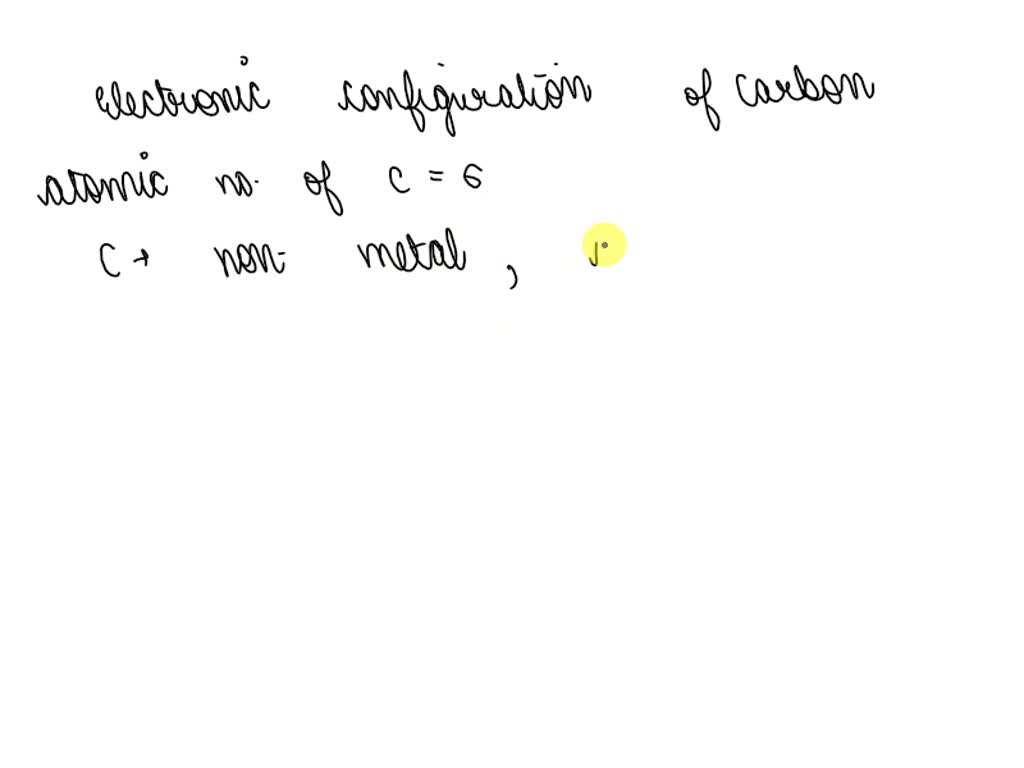 electronic configuration of carbon
atomic no. of C = 6
C → non-metal,